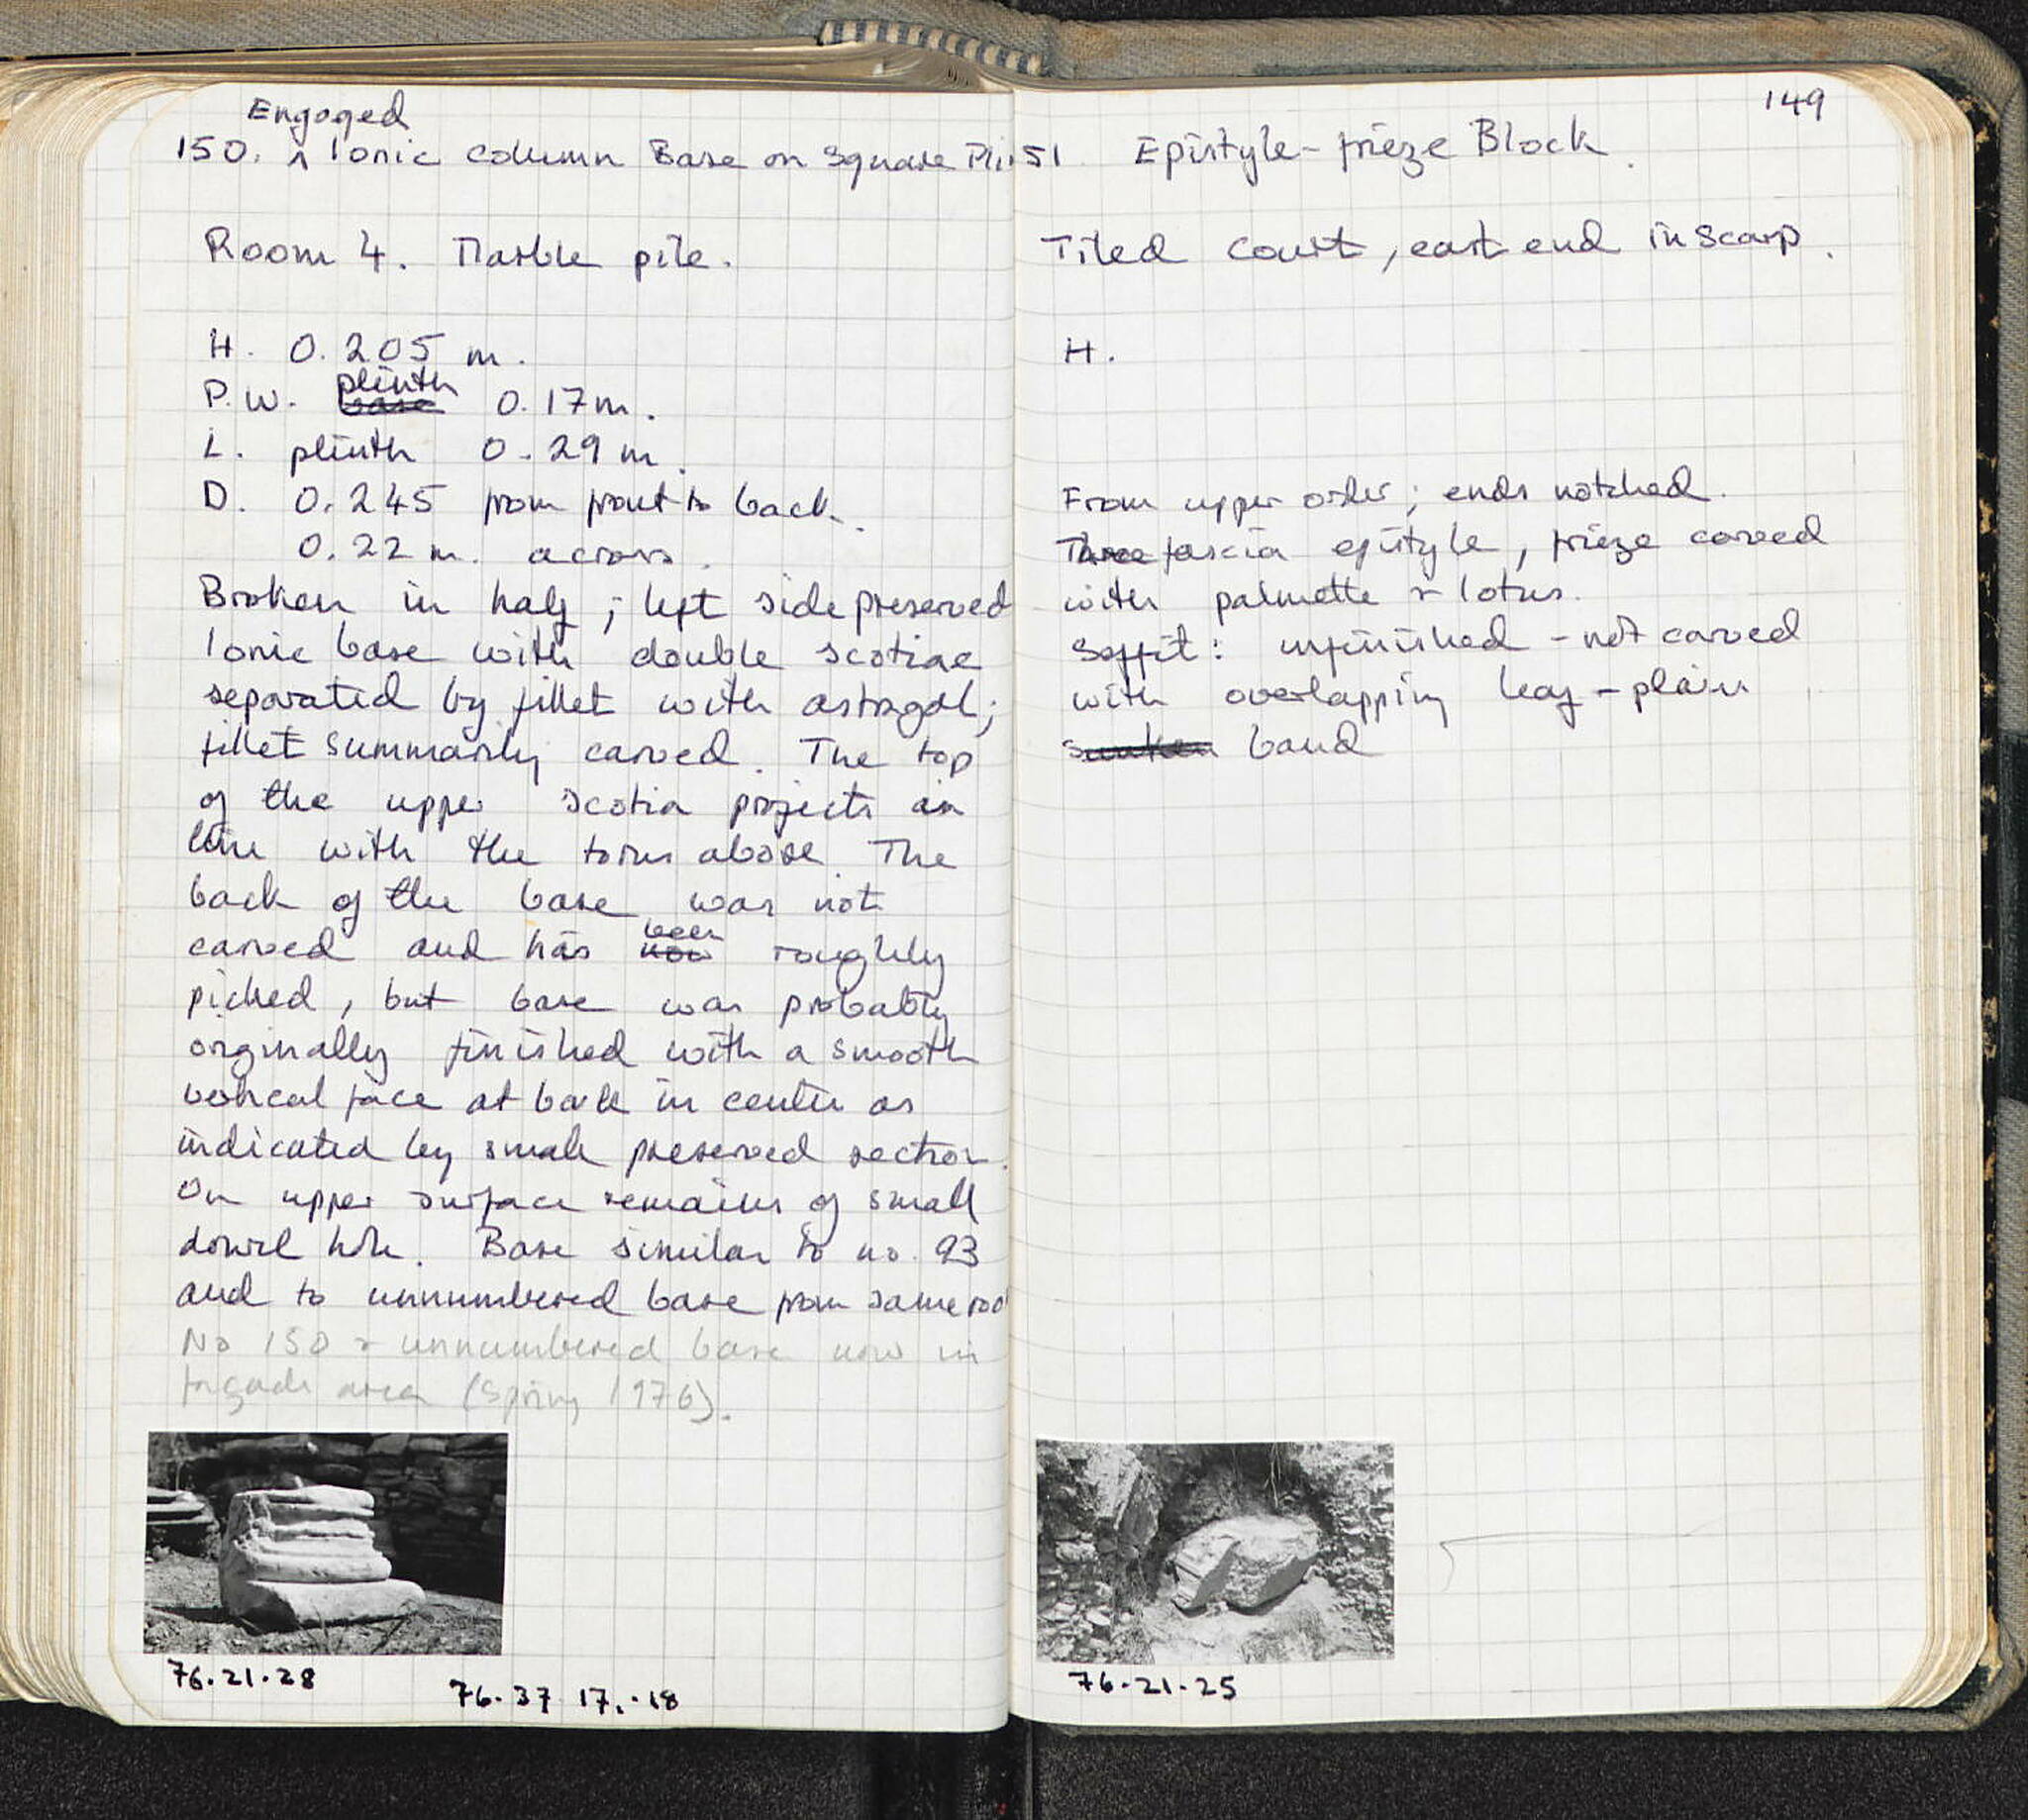 Engaged
150. ^ Ionic Column Base on Square Pli
Room 4. Marble pile.
H. 0.205 m.
plinth
P.W. base 0.17m.
L. plinth 0.29 m.
D. 0.245 from front to back.
0.22 m. across.
Broken in half; left side preserved
Ionic base with double scotiae
separated by fillet with astragal;
fillet summarily carved. The top
of the upper scotia projects in
line with the torus above. The
back of the base was not
been
carved and has now roughly
picked, but base was probably
originally finished with a smooth
vertical face at back in center as
indicated by small preserved section.
On upper surface remains of small
dowel hole. Base similar to no. 93
and to unnumbered base from same roo
No 150 & unnumbered base now in
façade area (Spring 1976).
76.21.28
76.37 17,.18
149
51 Epistyle-frieze Block.
Tiled Court, east end in scarp.
H.
From upper order; ends notched.
Three fascia epistyle, frieze carved
with palmette & lotus.
Soffit: unfinished - not carved
with overlapping leaf - plain
sunken band
76.21.25